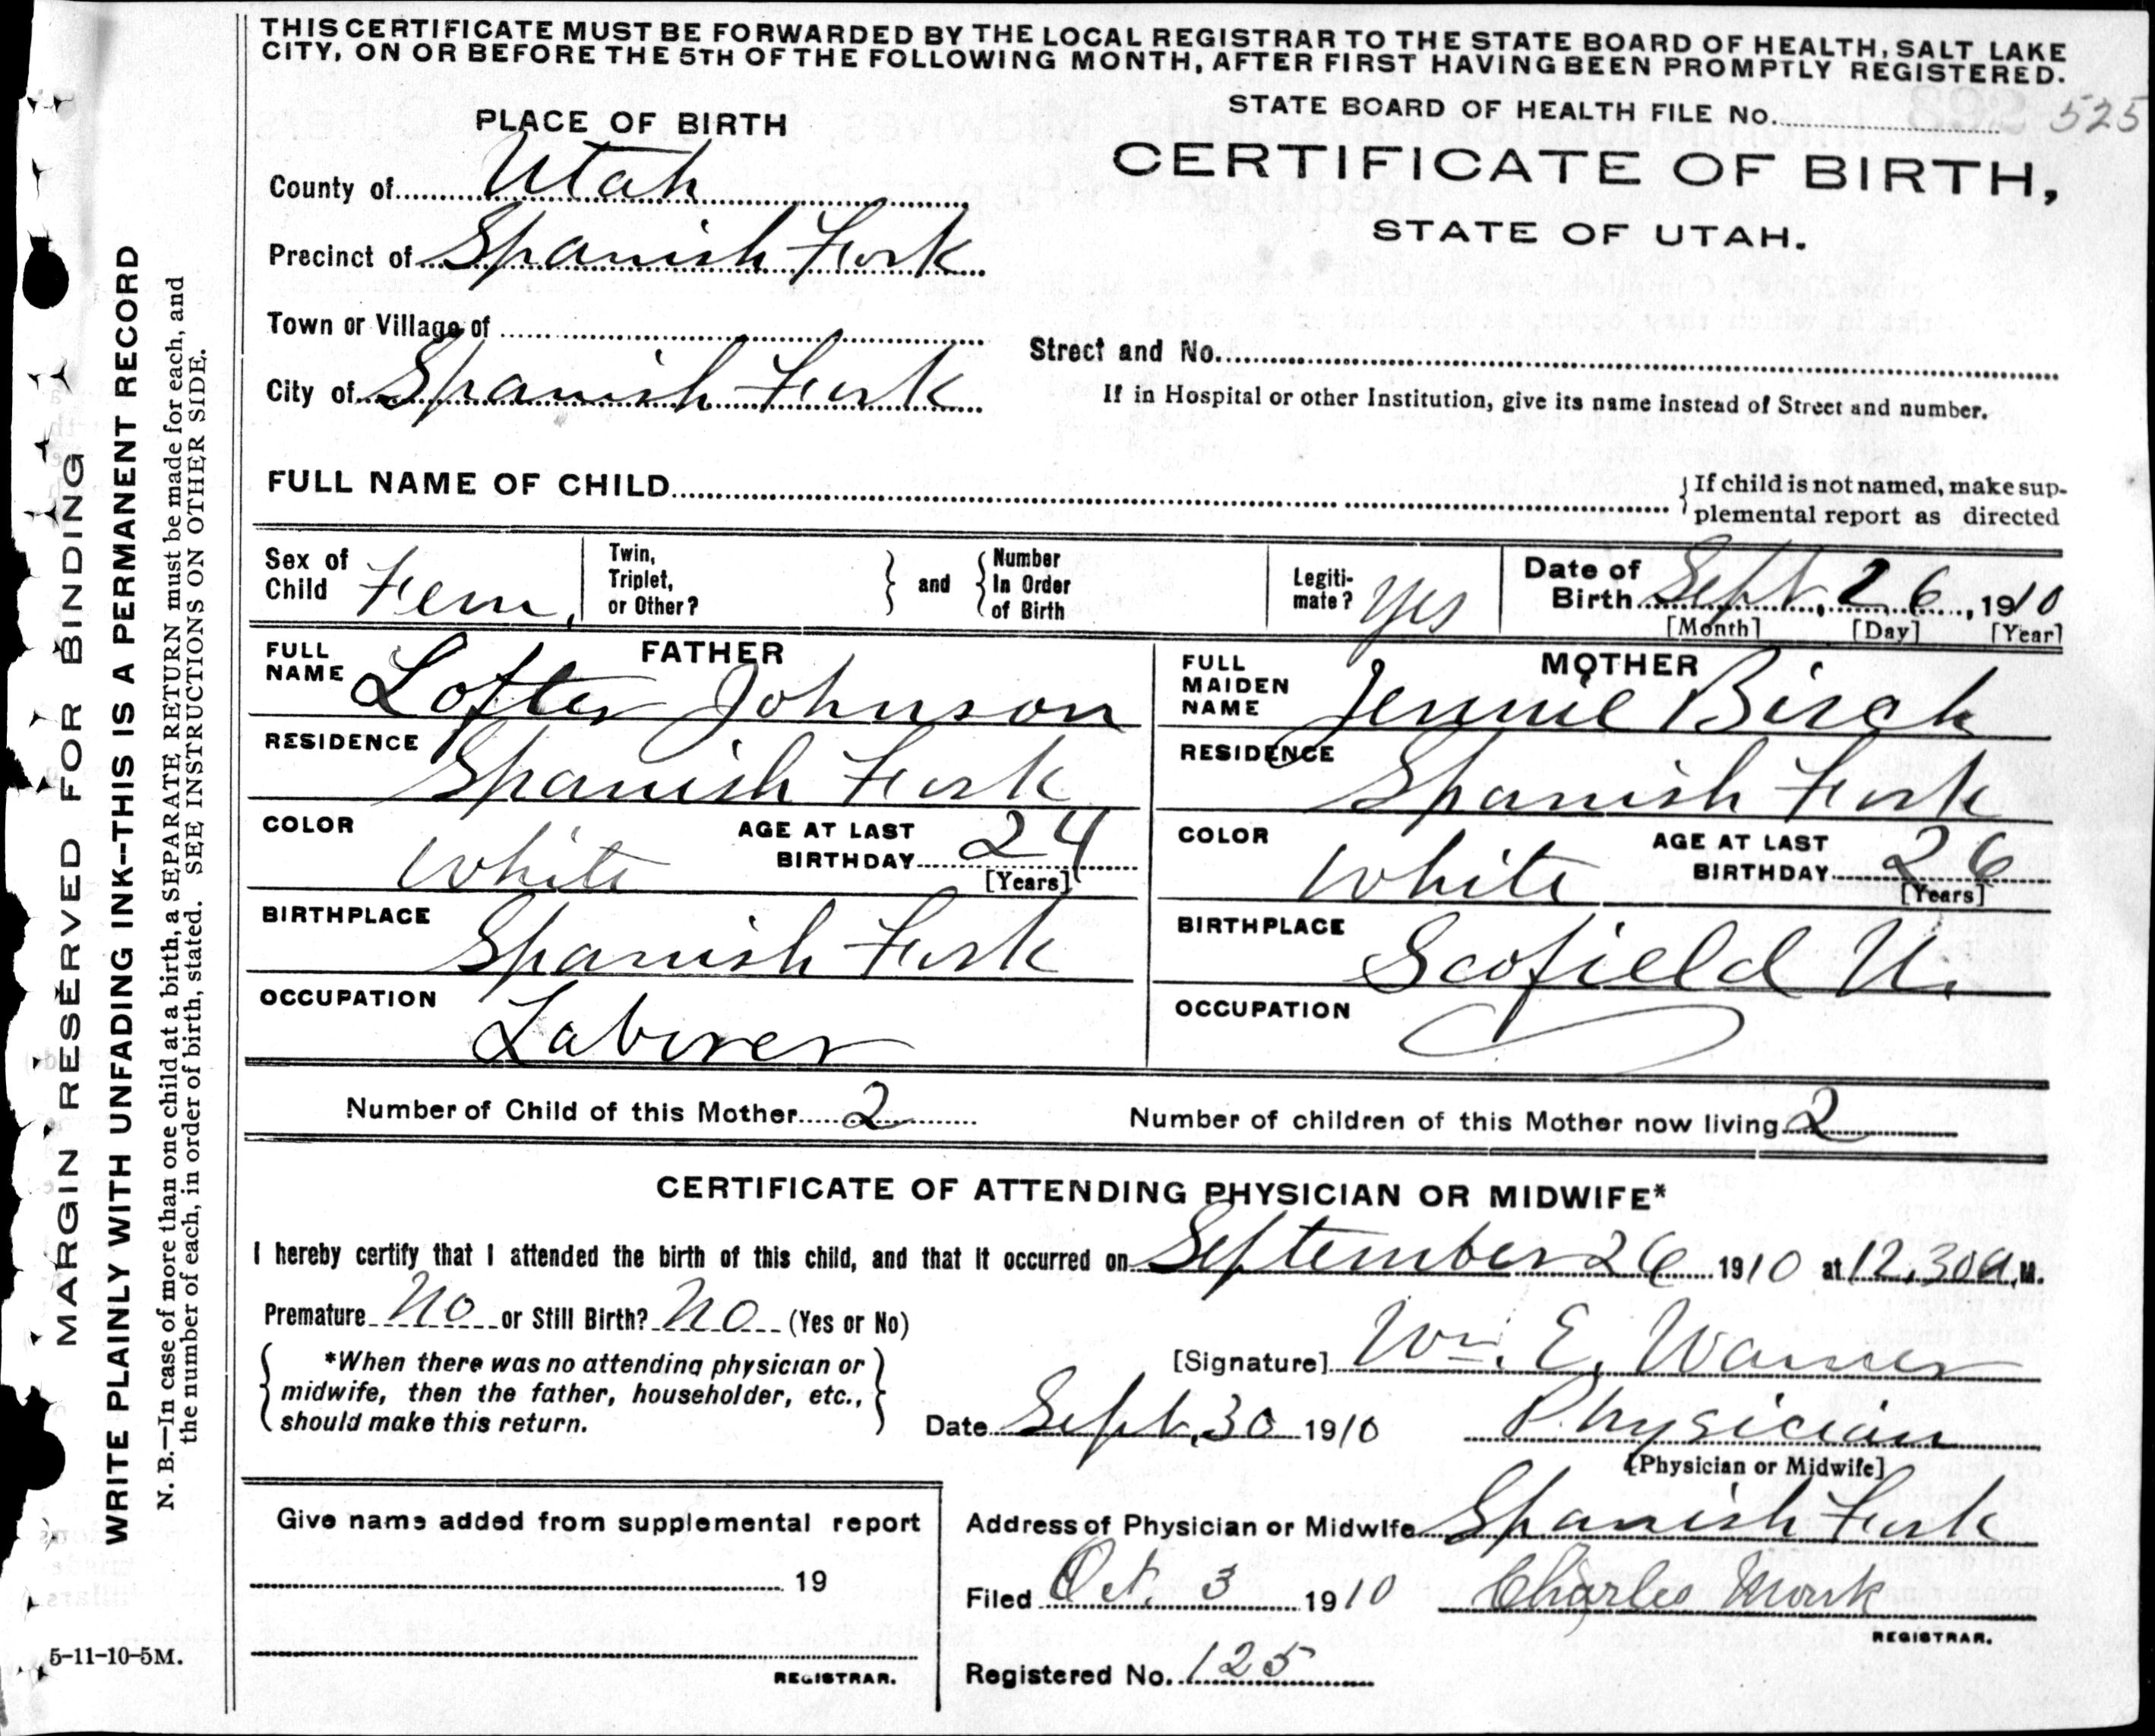 THIS CERTIFICATE MUST BE FORWARDED BY THE LOCAL REGISTRAR TO THE STATE BOARD OF HEALTH, SALT LAKE
CITY, ON OR BEFORE THE 5TH OF THE FOLLOWING MONTH, AFTER FIRST HAVING BEEN PROMPTLY REGISTERED.
STATE BOARD OF HEALTH FILE No. 525
PLACE OF BIRTH
CERTIFICATE OF BIRTH,
STATE OF UTAH.
County of Utah
Precinct of Spanish Fork
Town or Village of
City of Spanish Fork
Street and No.
If in Hospital or other Institution, give its name instead of Street and number.
FULL NAME OF CHILD
If child is not named, make sup-
plemental report as directed
Sex of Child Fem.
Twin, Triplet, or Other?
and
Number In Order of Birth
Legiti-mate? Yes
Date of Birth Sept. 26, 1910
[Month] [Day] [Year]
FATHER
FULL NAME Lofter Johnson
RESIDENCE Spanish Fork
COLOR White AGE AT LAST BIRTHDAY 24 [Years]
BIRTHPLACE Spanish Fork
OCCUPATION Laborer
MOTHER
FULL MAIDEN NAME Jennie Birch
RESIDENCE Spanish Fork
COLOR White AGE AT LAST BIRTHDAY 26 [Years]
BIRTHPLACE Scofield U.
OCCUPATION
Number of Child of this Mother 2 Number of children of this Mother now living 2
CERTIFICATE OF ATTENDING PHYSICIAN OR MIDWIFE*
I hereby certify that I attended the birth of this child, and that it occurred on September 26 1910 at 12,30 a. M.
Premature No or Still Birth? No (Yes or No)
*When there was no attending physician or
midwife, then the father, householder, etc.,
should make this return.
[Signature] Wm. E. Warner
Date Sept. 30 1910 Physician
[Physician or Midwife]
Give name added from supplemental report
19
REGISTRAR.
Address of Physician or Midwife Spanish Fork
Filed Oct. 3 1910 Charles Monk
REGISTRAR.
Registered No. 125
MARGIN RESERVED FOR BINDING
WRITE PLAINLY WITH UNFADING INK--THIS IS A PERMANENT RECORD
N. B.—In case of more than one child at a birth, a SEPARATE RETURN must be made for each, and
the number of each, in order of birth, stated. SEE INSTRUCTIONS ON OTHER SIDE.
5-11-10-5M.